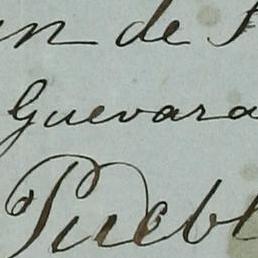 de
Guevara
Puebl